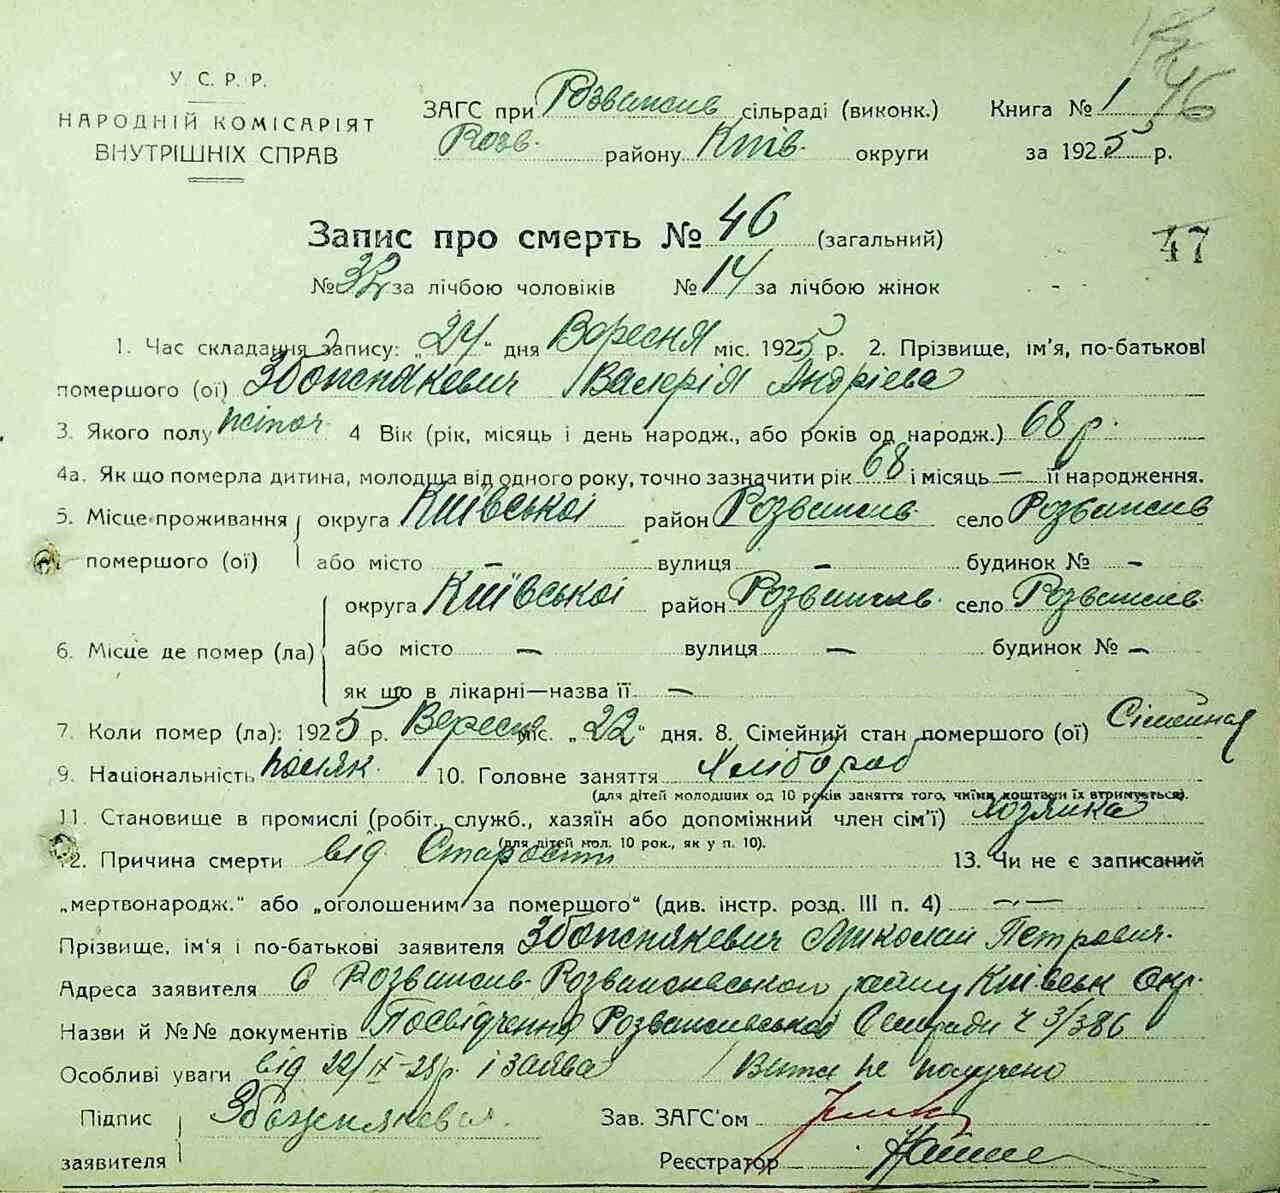 У. С. Р. Р.
НАРОДНІЙ КОМІСАРІЯТ
ВНУТРІШНІХ СПРАВ
ЗАГС при Розважив сільраді (виконк.) Книга № 1 46
Розв. району Київ. округи за 1925 р.
Запис про смерть № 46 (загальний)
47
№ 32 за лічбою чоловіків № 14 за лічбою жінок
1. Час складання запису: „24" дня Вересня міс. 1925 р. 2. Прізвище, ім'я, по-батькові
помершого (ої) Збожнякевич Валерія Андріева
3. Якого полу жіноч 4 Вік (рік, місяць і день народж., або років од народж.) 68 р.
4а. Як що померла дитина, молодша від одного року, точно зазначити рік 68 і місяць — її народження.
5. Місце проживання округа Київської район Розважив село Розважив
помершого (ої) або місто — вулиця — будинок № —
округа Київської район Розважив село Розважив
6. Місце де помер (ла) або місто — вулиця — будинок № —
як що в лікарні—назва її —
7. Коли помер (ла): 1925 р. Вересня міс. „22" дня. 8. Сімейний стан помершого (ої) Сімейная
9. Національність поляк. 10. Головне заняття Хлібороб
(для дітей молодших од 10 років заняття того, чиїми коштами їх втримується).
11. Становище в промислі (робіт., служб., хазяїн або допоміжний член сім'ї) хозяйка
(для дітей мол. 10 рок., як у п. 10).
12. Причина смерти від Старости 13. Чи не є записаний
„мертвонародж." або „оголошеним за помершого" (див. інстр. розд. III п. 4) — —
Прізвище, ім'я і по-батькові заявителя Збожнякевич Миколай Петрович.
Адреса заявителя с Розважив Розважевського району Київськ окр.
Назви й №№ документів Посвідчення Розважевської Сельради ч 3/386
Особливі уваги від 22/IX-25р. і заява / Витяг не получено
Підпис Збожнякевич. Зав. ЗАГС'ом
заявителя Реєстратор